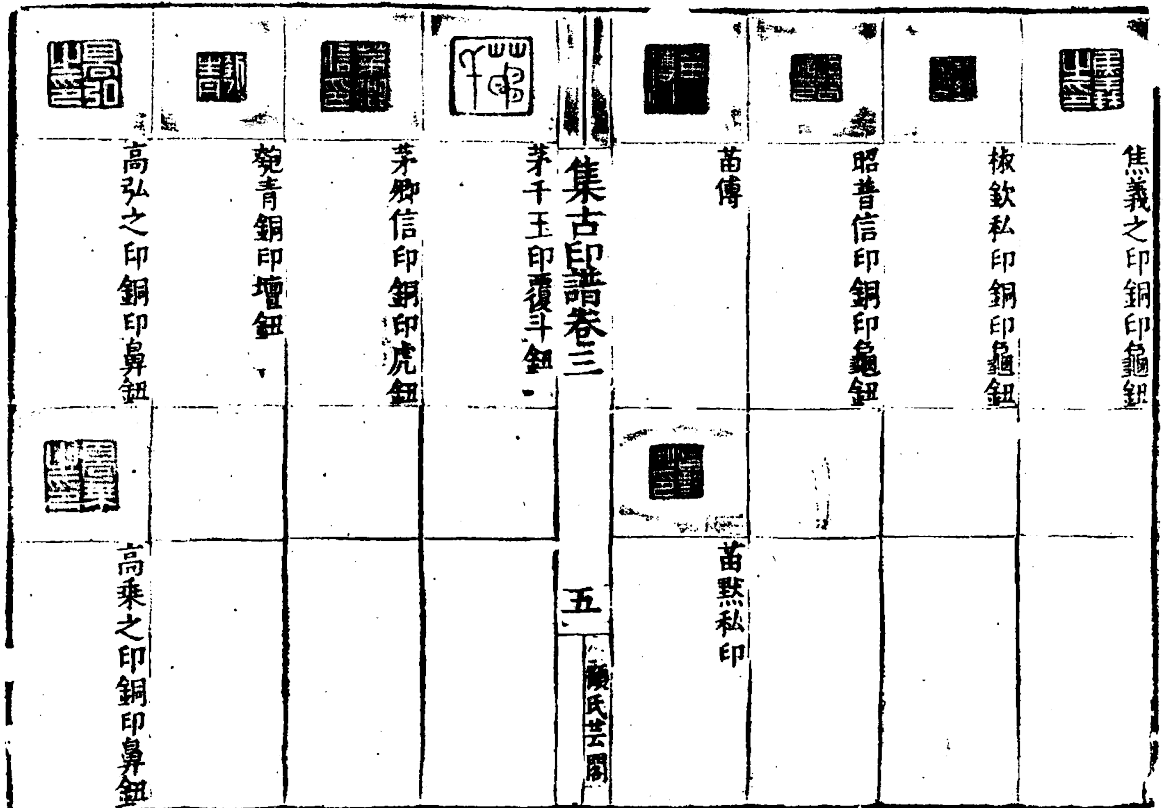 焦義之印銅印龜鈕
椒欽私印銅印龜鈕
昭普信印銅印龜鈕
苗傅
苗黙私印
集古印譜卷三
五
顧氏芸閣
茅千玉印覆斗鈕
茅卿信印銅印虎鈕
青銅印壇鈕
高弘之印銅印鼻鈕
高乘之印銅印鼻鈕